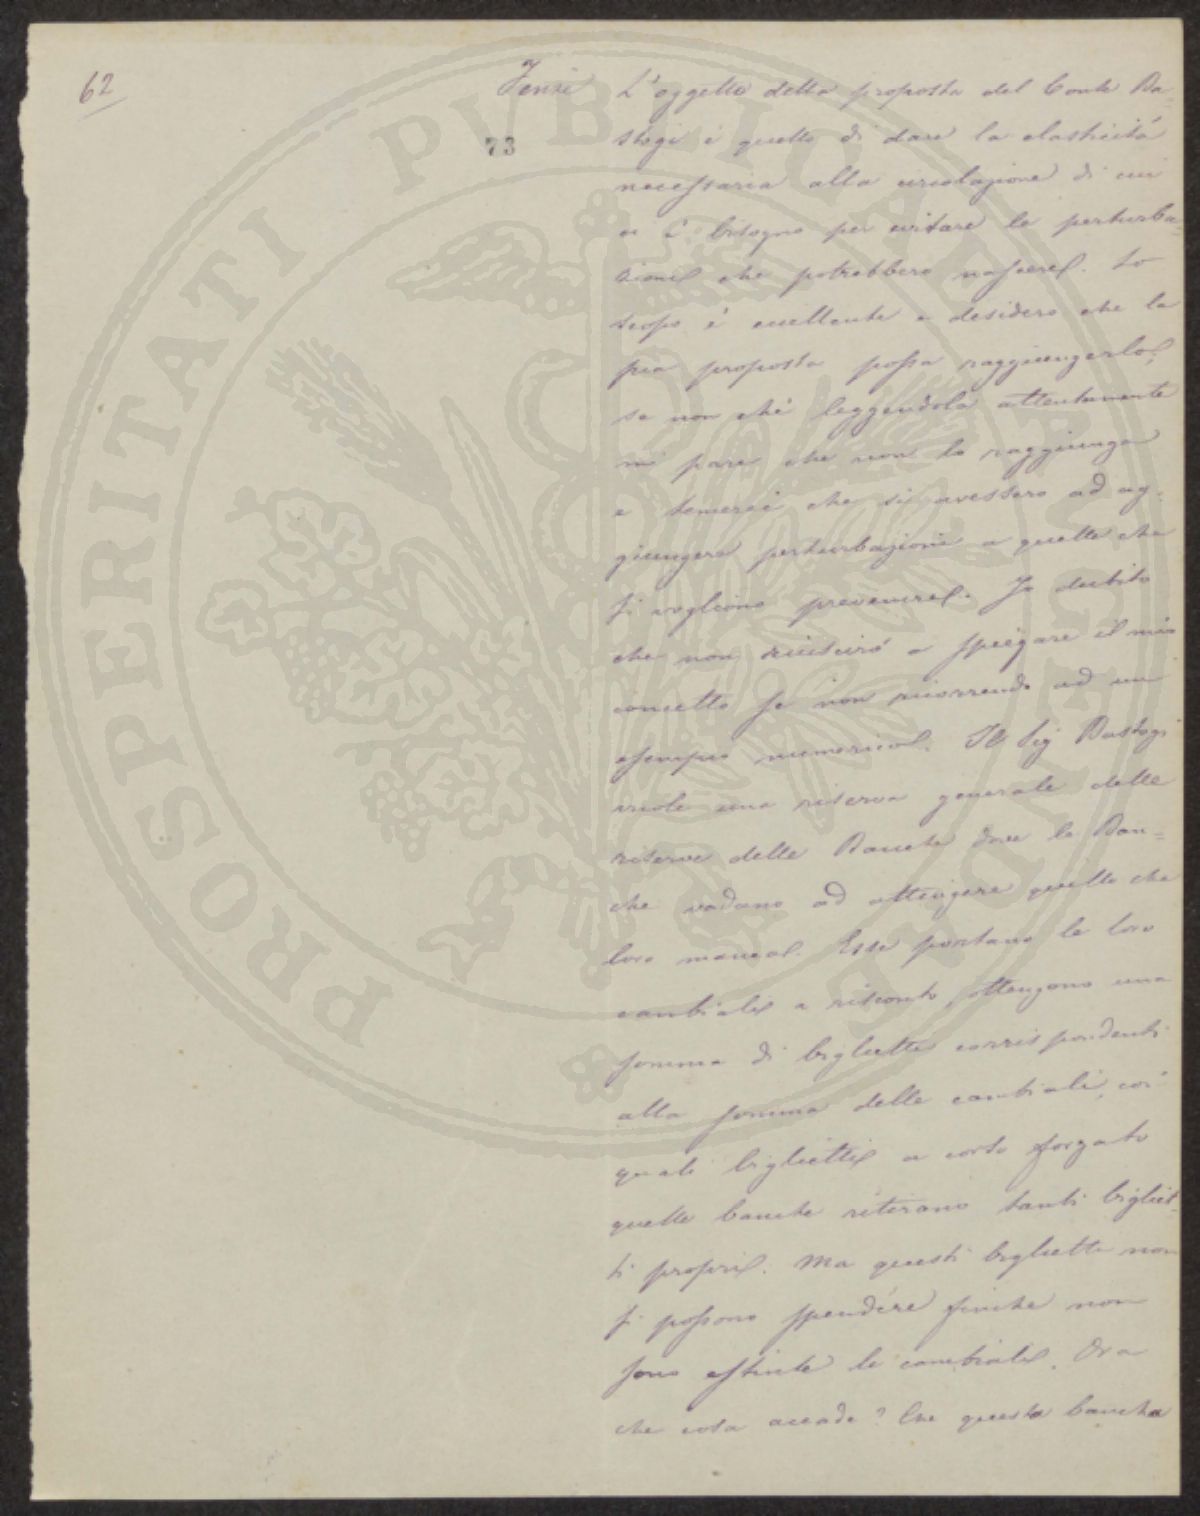 62
Tenzi L'oggetto della proposta del Conte Ba-
73
stogi è quello di dare la elasticità
necessaria alla circolazione di cui
vi è bisogno per evitare le perturba-
zioni che potrebbero nascere. Lo
scopo è eccellente e desidero che la
sua proposta possa raggiungerlo;
se non chè leggendola attentamente
mi pare che non lo raggiunga
e temerei che si avessero ad ag-
giungere perturbazioni a quelle che
si vogliono prevenire. Io dubito
che non riuscirò a spiegare il mio
concetto se non ricorrendo ad un
esempio numerico. Il Sig Bastogi
vuole una riserva generale delle
riserve delle Banche dove le Ban=
che vadano ad attingere quello che
loro manca. Esse portano le loro
cambiali a risconto, ottengono una
somma di biglietti corrispondenti
alla somma delle cambiali, coi
quali biglietti a corso forzato
quelle banche ritirano tanti bigliet-
ti proprii. Ma questi biglietti non
si possono spendere finchè non
sono estinte le cambiali. Ora
che cosa accade? Che questa banche
PROSPERITATI PVBLICAE